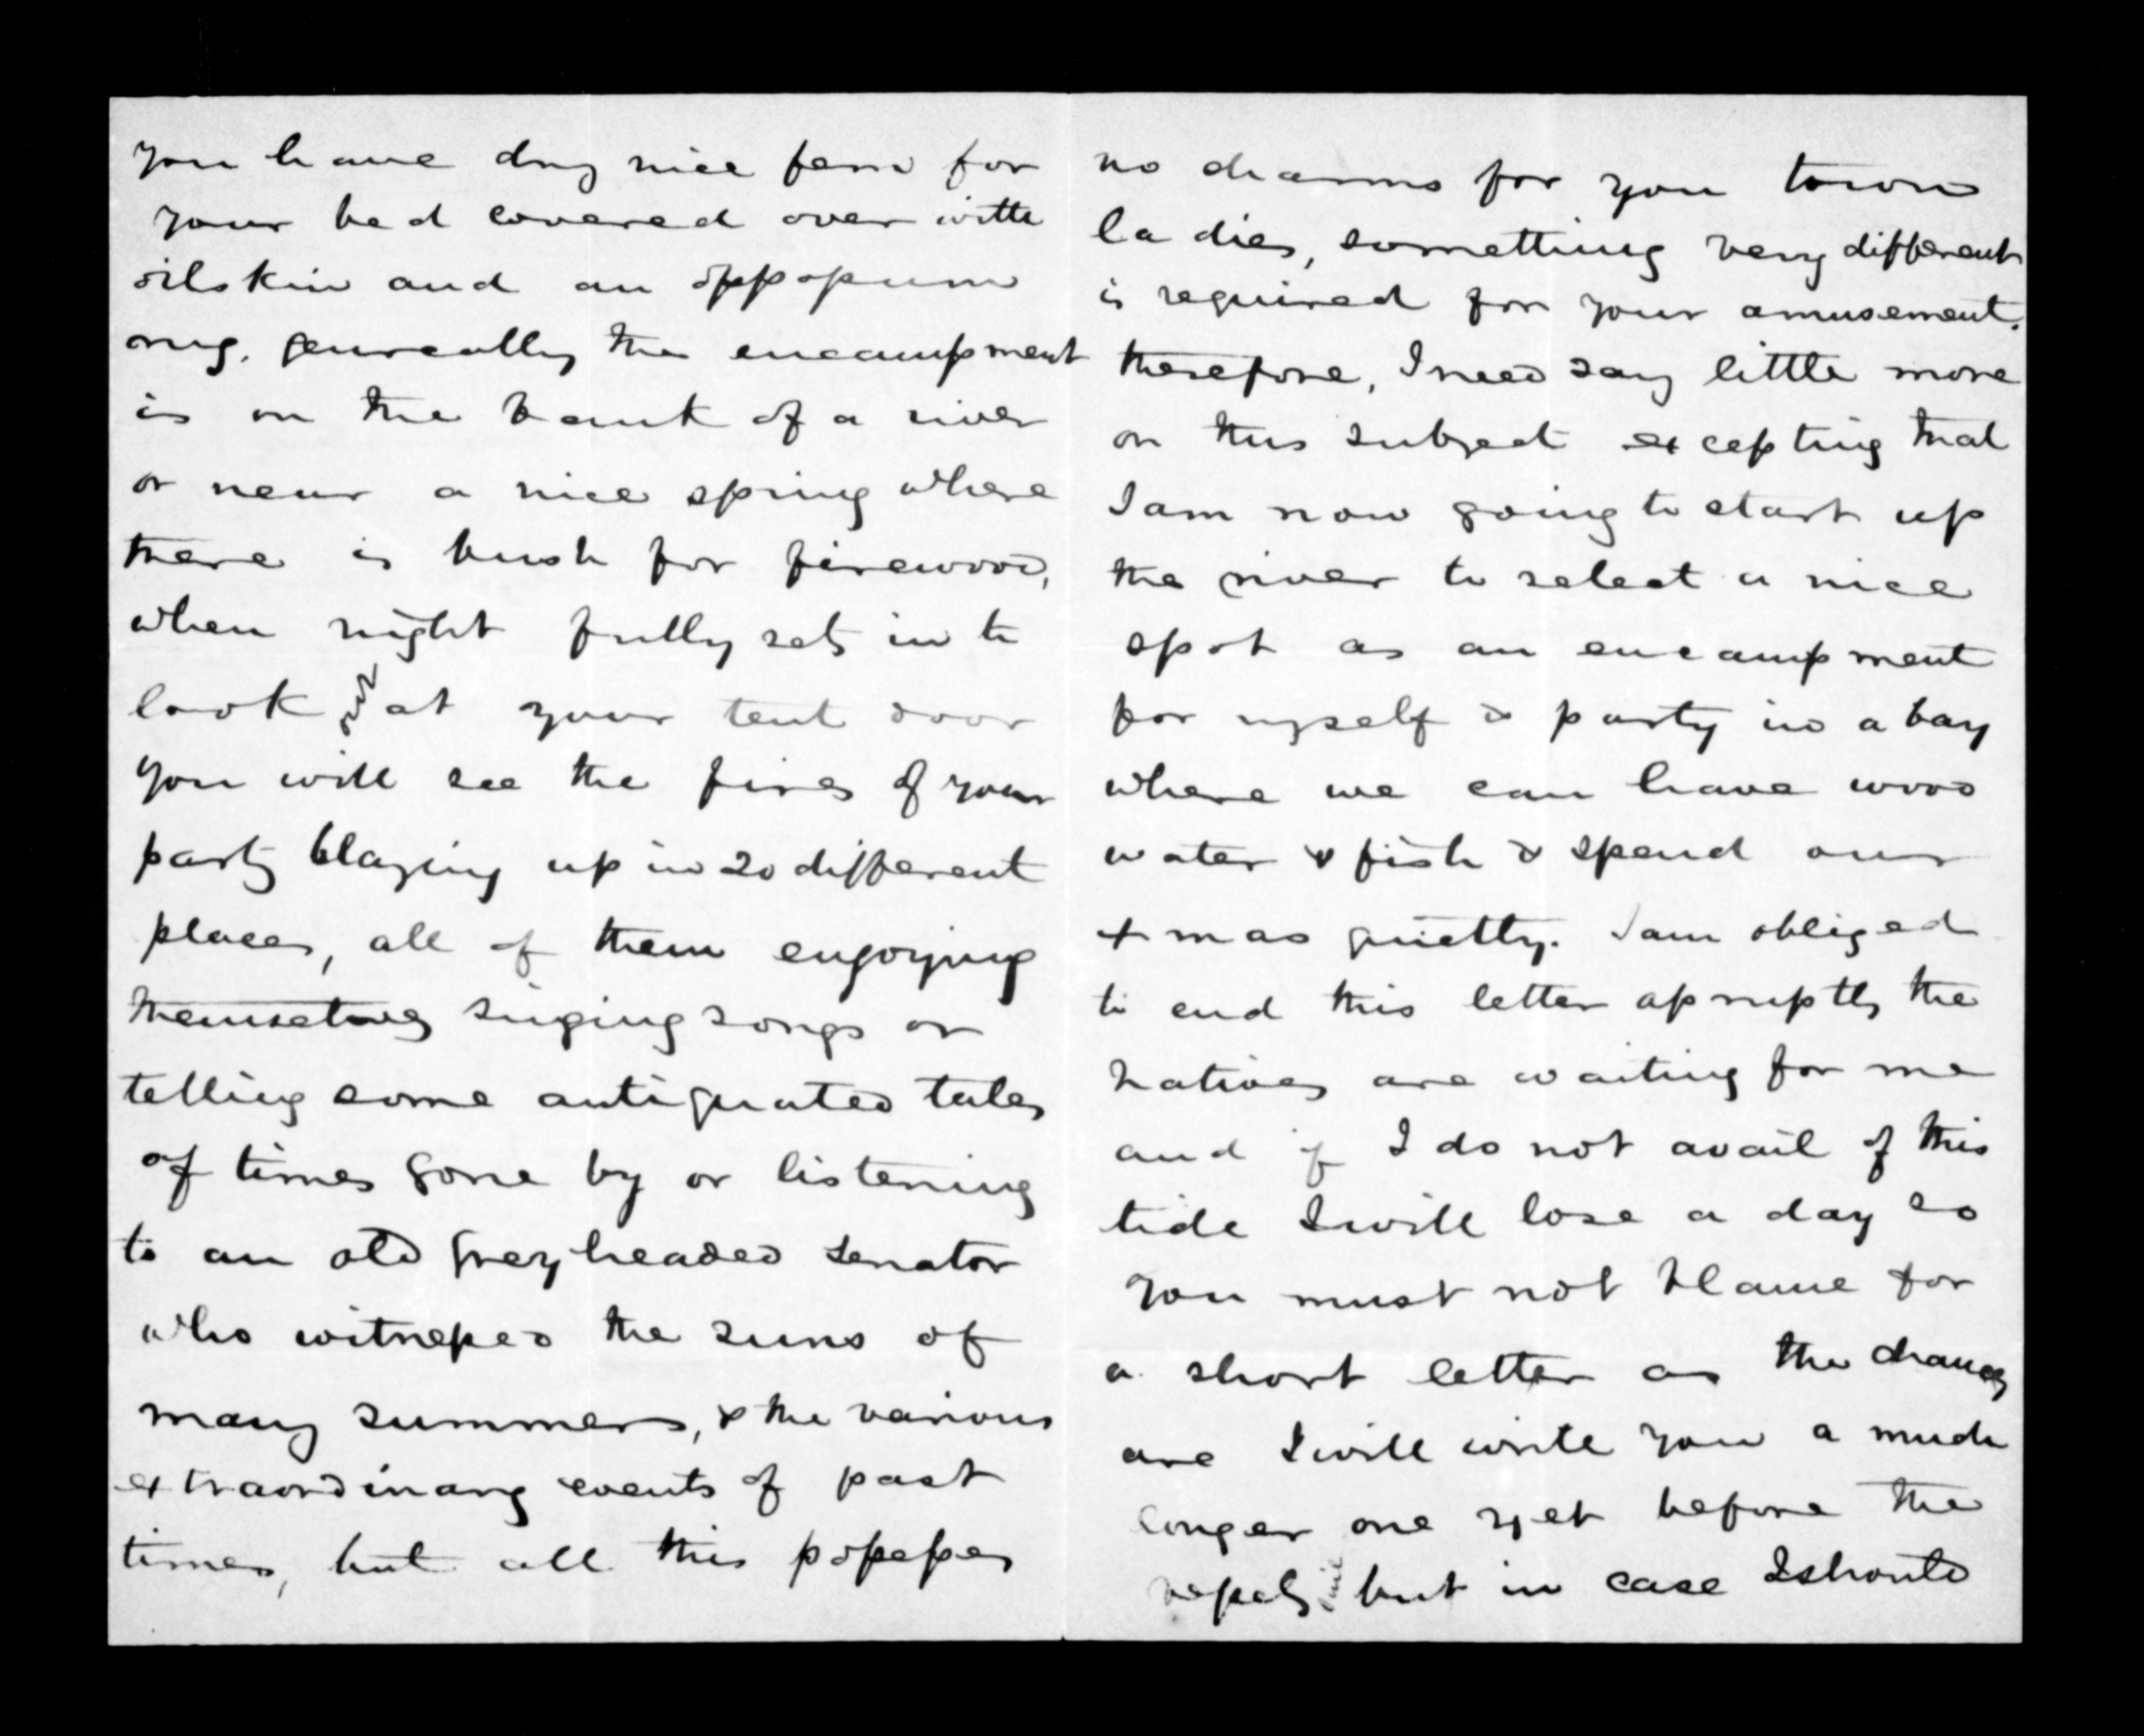 you have dry nice fern for
your bed covered over with
oilskin and an oppossum
rug. genreally the encampment
is on the bank of a river
or near a nice spring where
there is bush for firewood,
when night fully sets in to
look out at your tent door
you will see the fires of your
party blazing up in 20 different
places, all of them enjoying
themselves singing songs or
telling some antiquated tales
of times gone by or listening
to an old greyheaded senator
who witnessed the suns of
many summers, & the various
extraordinary events of past
times, but all this possesses
no charms for you town
ladies, something very different
is required for your amusement.
therefore, I need say little more
on this subject excepting that
I am now going to start up
the river to select a nice
spot as an encampment
for myself & party in a bay
where we can have wood
water & fish & spend our
xmas quietly. I am obliged
to end this letter apruptly the
natives are waiting for me
and if I do not avail of this
tide I will lose a day so
you must not blame for
a short letter as the chances
are I will write you a much
longer one yet before the
vessels sail but in case I should